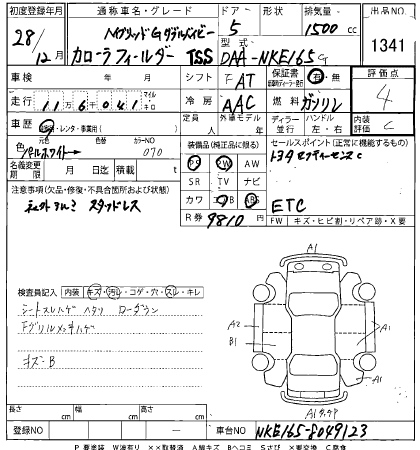 初度登録年月 通称車名・グレード ドア 形状 排気量 出品NO
28/12月 ハイブリッドG ダブルバイビー 5 1500cc
カローラフィールダー TSS 型式 DAA-NKE165G 1341
車検 年 月 シフト FAT 保証書 有・無 評価点
走行 11万6千041 マイル キロ 冷房 AAC 燃料 ガソリン 4
車歴 レンタ・事業用( ) 定員 人 外車モデル 年 ディーラー 並行 ハンドル 左・右 内装評価 C
色 元色 パールホワイト 色替 カラーNO 070
装備品(純正品に限る) セールスポイント(正常に機能するもの)
名義変更期限 月 日迄 積載 t
PS PW AW トヨタセフティーセンスC
SR TV ナビ
注意事項(欠品・修復・不具合箇所および状態)
カワ ABS ETC
スタッドレス
R券 9810円 FW キズ・ヒビ割・リペア跡・X要
検査員記入 内装 キズ・汚レ・コゲ・穴・スレ・キレ
シートスレハゲ ヘタリ ローダウン
Fグリルメッキハゲ
キズ・B
A1
A2
B1
A1
A1
A1
長さ cm 幅 cm 高さ cm
登録NO 車台NO NKE165-8049123
P 要塗装 W波有り ××取替済 A線キズ Bヘコミ Sさび ×要交換 C腐食